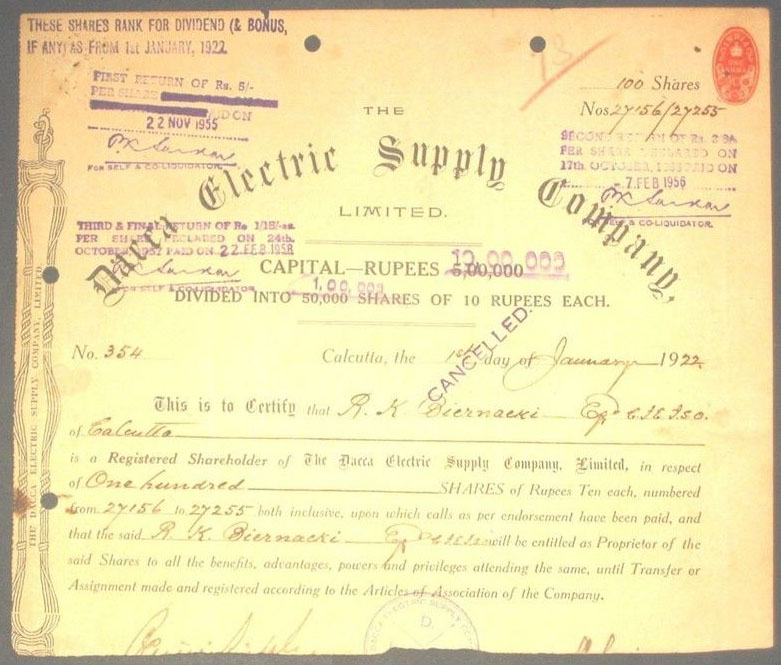 THESE SHARES RANK FOR DIVIDEND (& BONUS,
IF ANY) AS FROM 1st JANUARY, 1922.
73
100 Shares
Nos 27156/27255
FIRST RETURN OF Rs. 5/-
PER SHARE
ON
22 NOV 1955
FOR SELF & CO-LIQUIDATOR.
SECOND RETURN OF Rs.
PER SHARE DECLARED ON
17th. OCTOBER, PAID ON
7 FEB 1956
FOR SELF & CO-LIQUIDATOR.
THE
Dacca Electric Supply Company,
LIMITED.
THIRD & FINAL RETURN OF Re
PER SHARE DECLARED ON 24th.
OCTOBER 1957 PAID ON 22 FEB 1958
FOR SELF & CO-LIQUIDATOR
CAPITAL—RUPEES 5,00,000 10,00,000
1,00,000
DIVIDED INTO 50,000 SHARES OF 10 RUPEES EACH.
CANCELLED.
No. 354 Calcutta, the 1st day of January 1922
This is to Certify that R. K Biernacki
of Calcutta
is a Registered Shareholder of The Dacca Electric Supply Company, Limited, in respect
of One hundred SHARES of Rupees Ten each, numbered
from 27156 to 27255 both inclusive, upon which calls as per endorsement have been paid, and
that the said R. K. Biernacki will be entitled as Proprietor of the
said Shares to all the benefits, advantages, powers and privileges attending the same, until Transfer or
Assignment made and registered according to the Articles of Association of the Company.
THE DACCA ELECTRIC SUPPLY COMPANY, LIMITED
DACCA ELECTRIC SUPPLY CO
D.